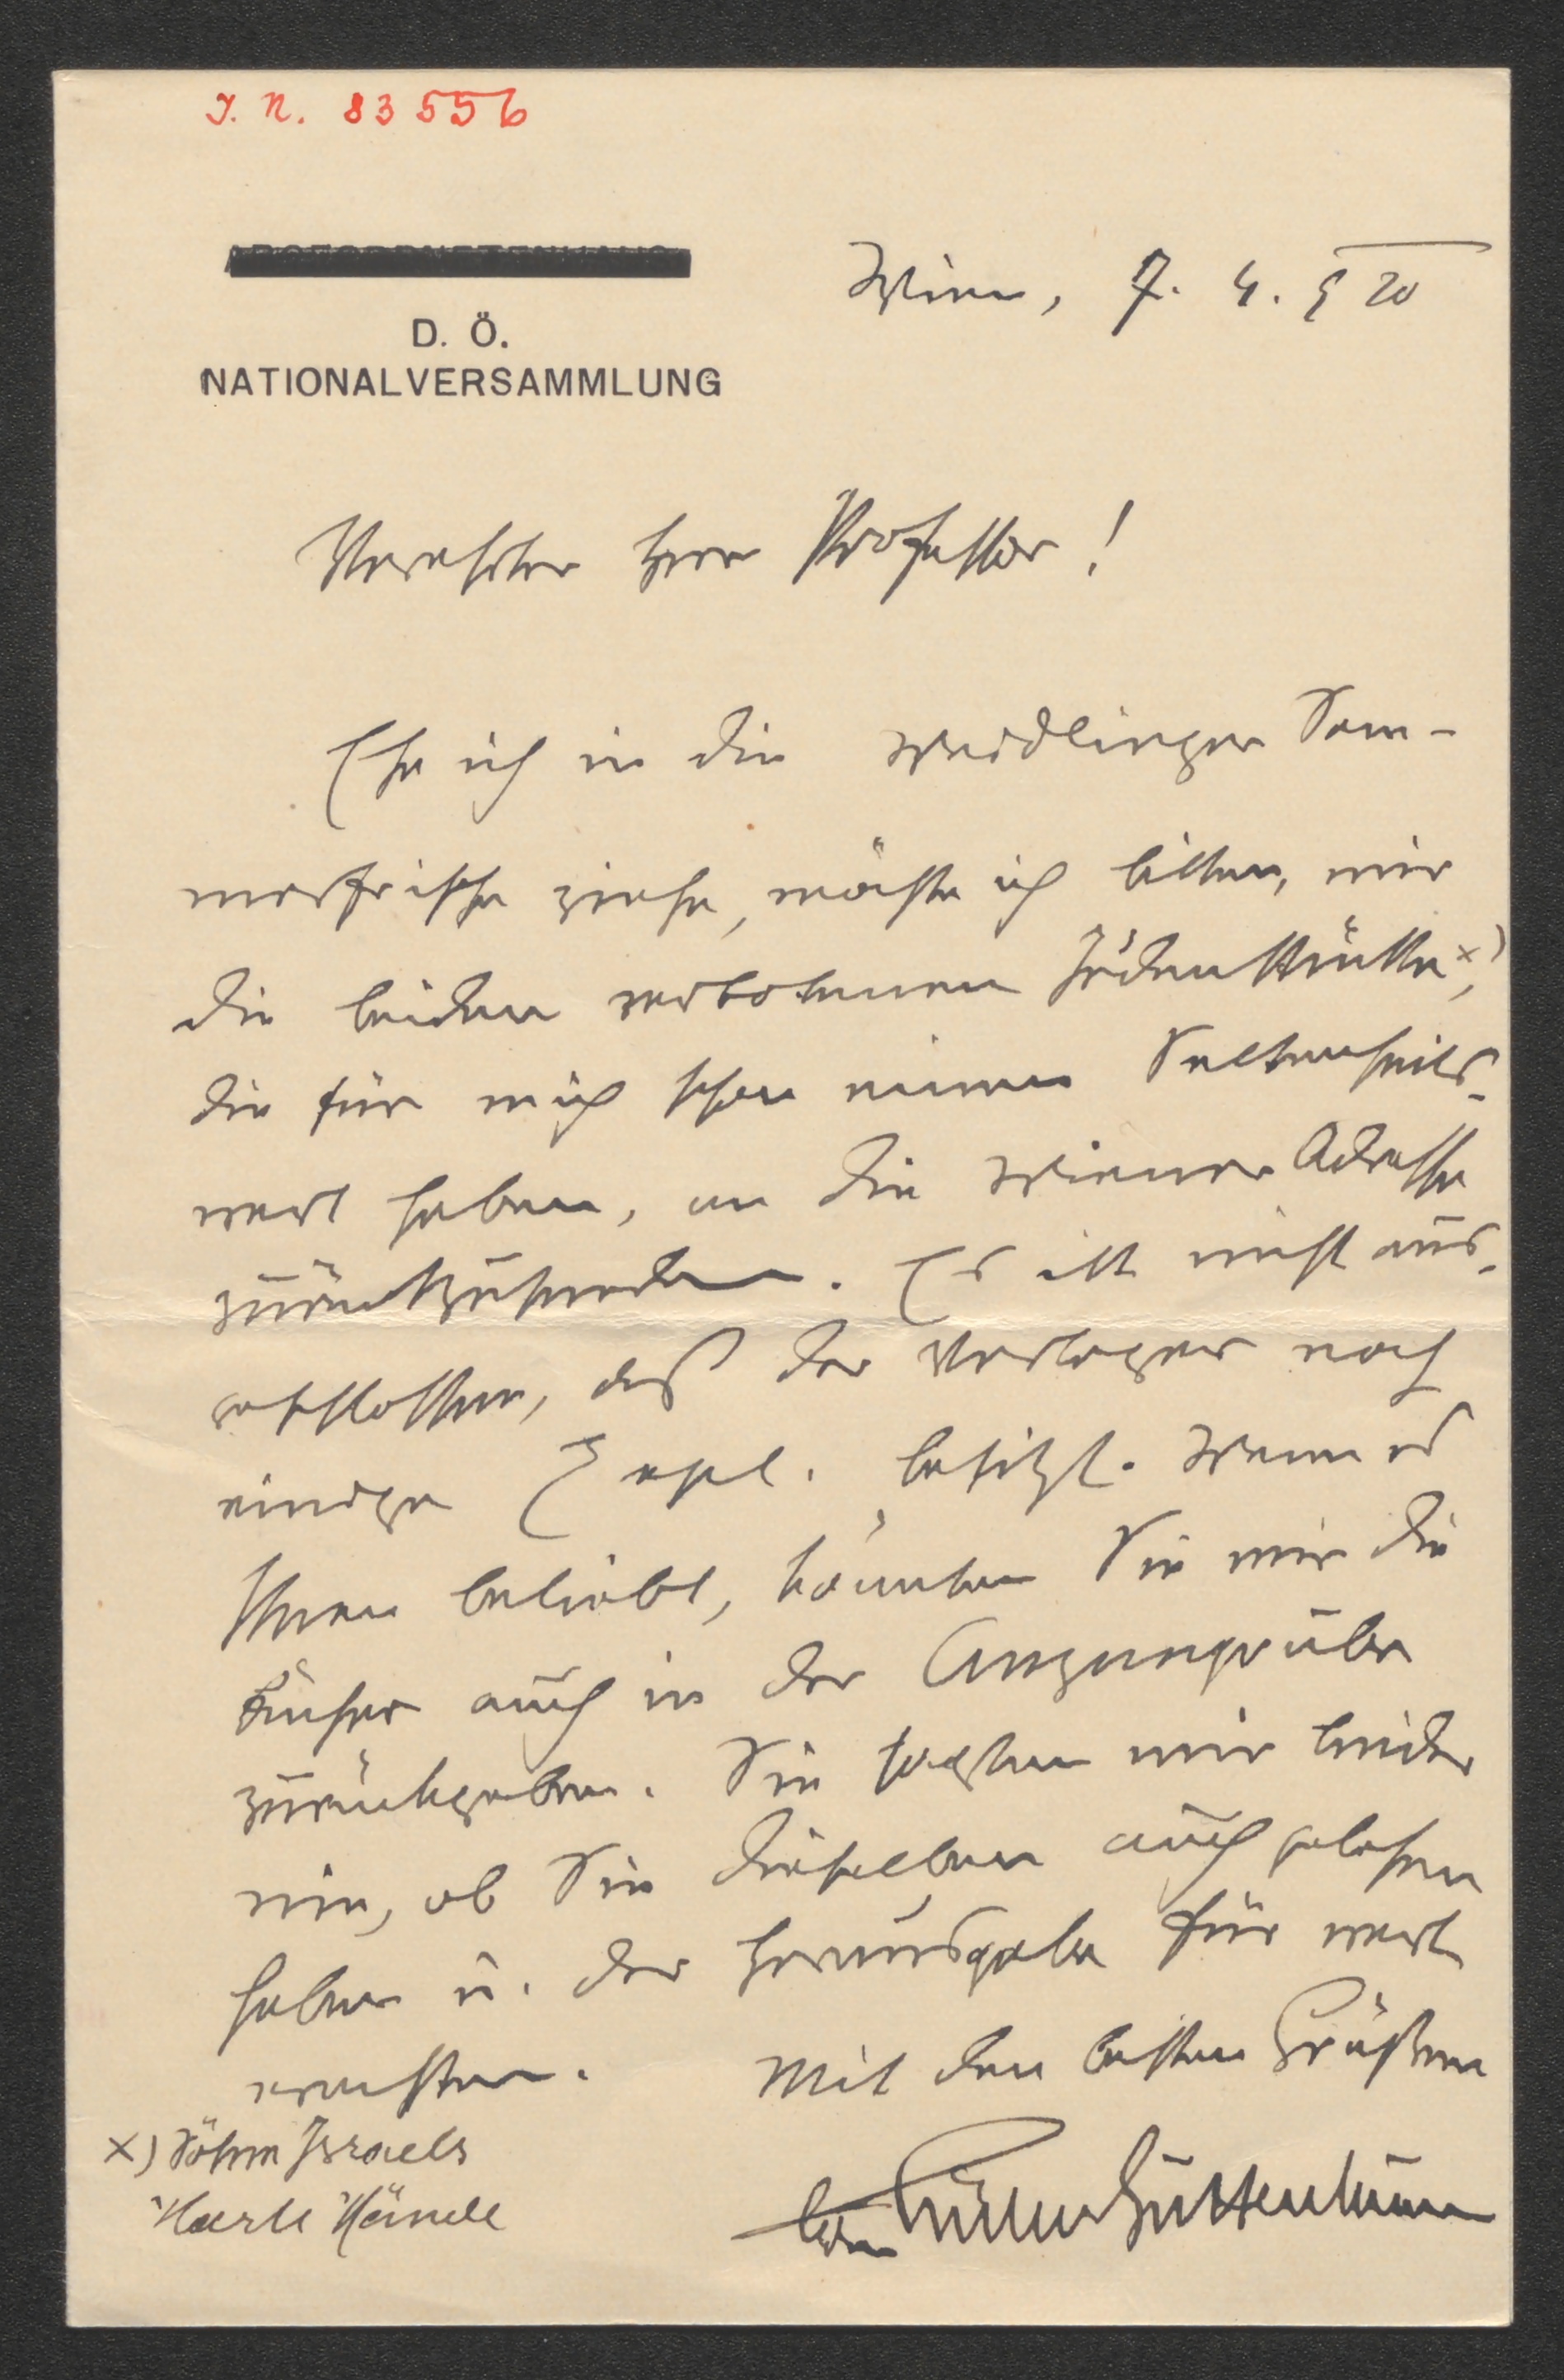 J. N. 83556
D. Ö.
NATIONALVERSAMMLUNG
Wien, 7. 4. 920
Verehrter Herr Professor!
Ehe ich in die Weidlinger Som-
merfrische ziehe, möchte ich bitten, mir
die beiden verbotenen Judenstücke x),
die für mich schon einen Seltenheits-
wert haben, an die Wiener Adresse
zurückzusenden. Es ist nicht aus-
geschlossen, daß der Verleger noch
einige Expl. besitzt. Wenn es
Ihnen beliebt, könnten Sie mir die
Bücher auch in der Anzengrube
zurückgeben. Sie sagten mir leider
nie, ob Sie dieselben auch gelesen
haben u. der Herausgabe für wert
erachten.
Mit den besten Grüßen
x) Söhne Israels
Harte Hände